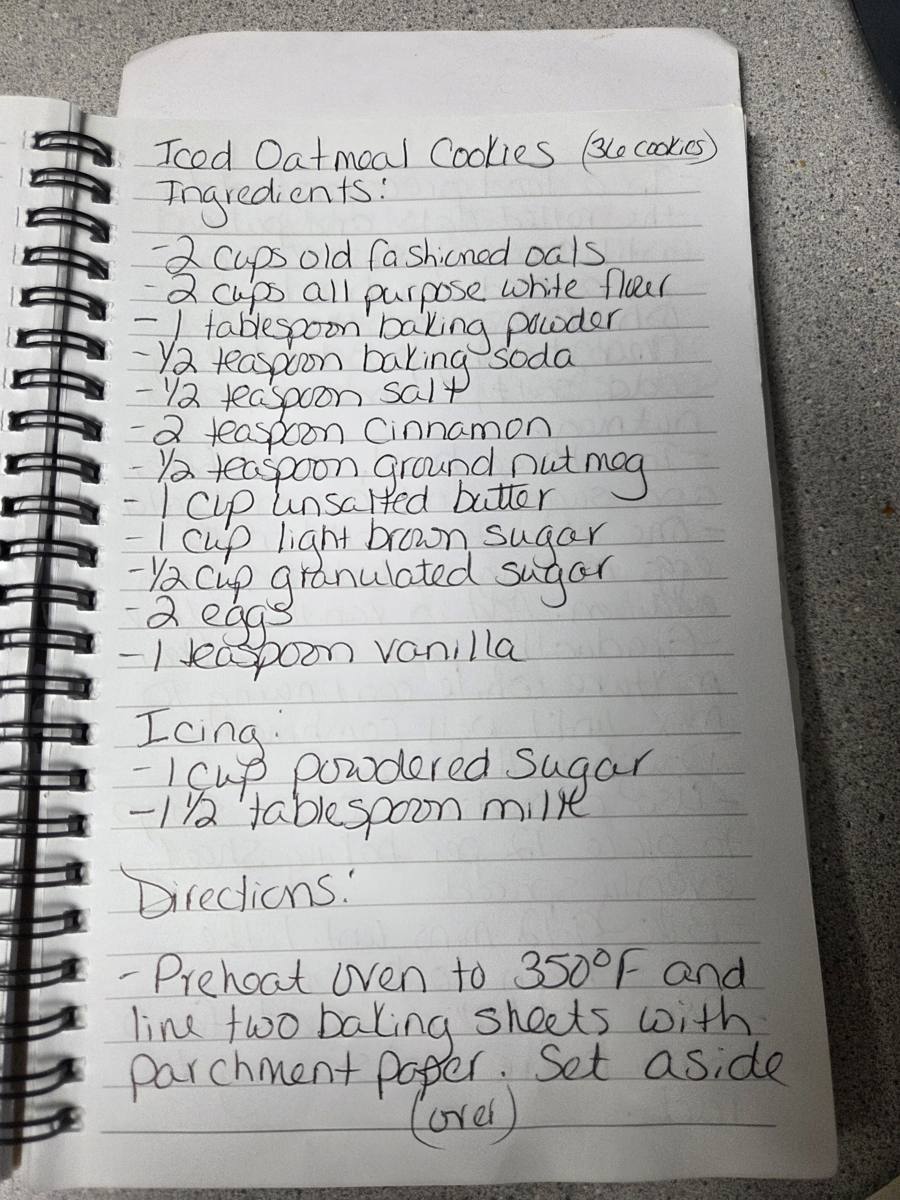 Iced Oatmeal Cookies (36 cookies)
Ingredients:
-2 cups old fashioned oats
-2 cups all purpose white flour
-1 tablespoon baking powder
-1/2 teaspoon baking soda
-1/2 teaspoon salt
-2 teaspoon cinnamon
-1/2 teaspoon ground nutmeg
-1 cup unsalted butter
-1 cup light brown sugar
-1/2 cup granulated sugar
-2 eggs
-1 teaspoon vanilla
Icing:
-1 cup powdered sugar
-1 1/2 tablespoon milk
Directions:
-Preheat oven to 350°F and
line two baking sheets with
parchment paper. Set aside
(over)